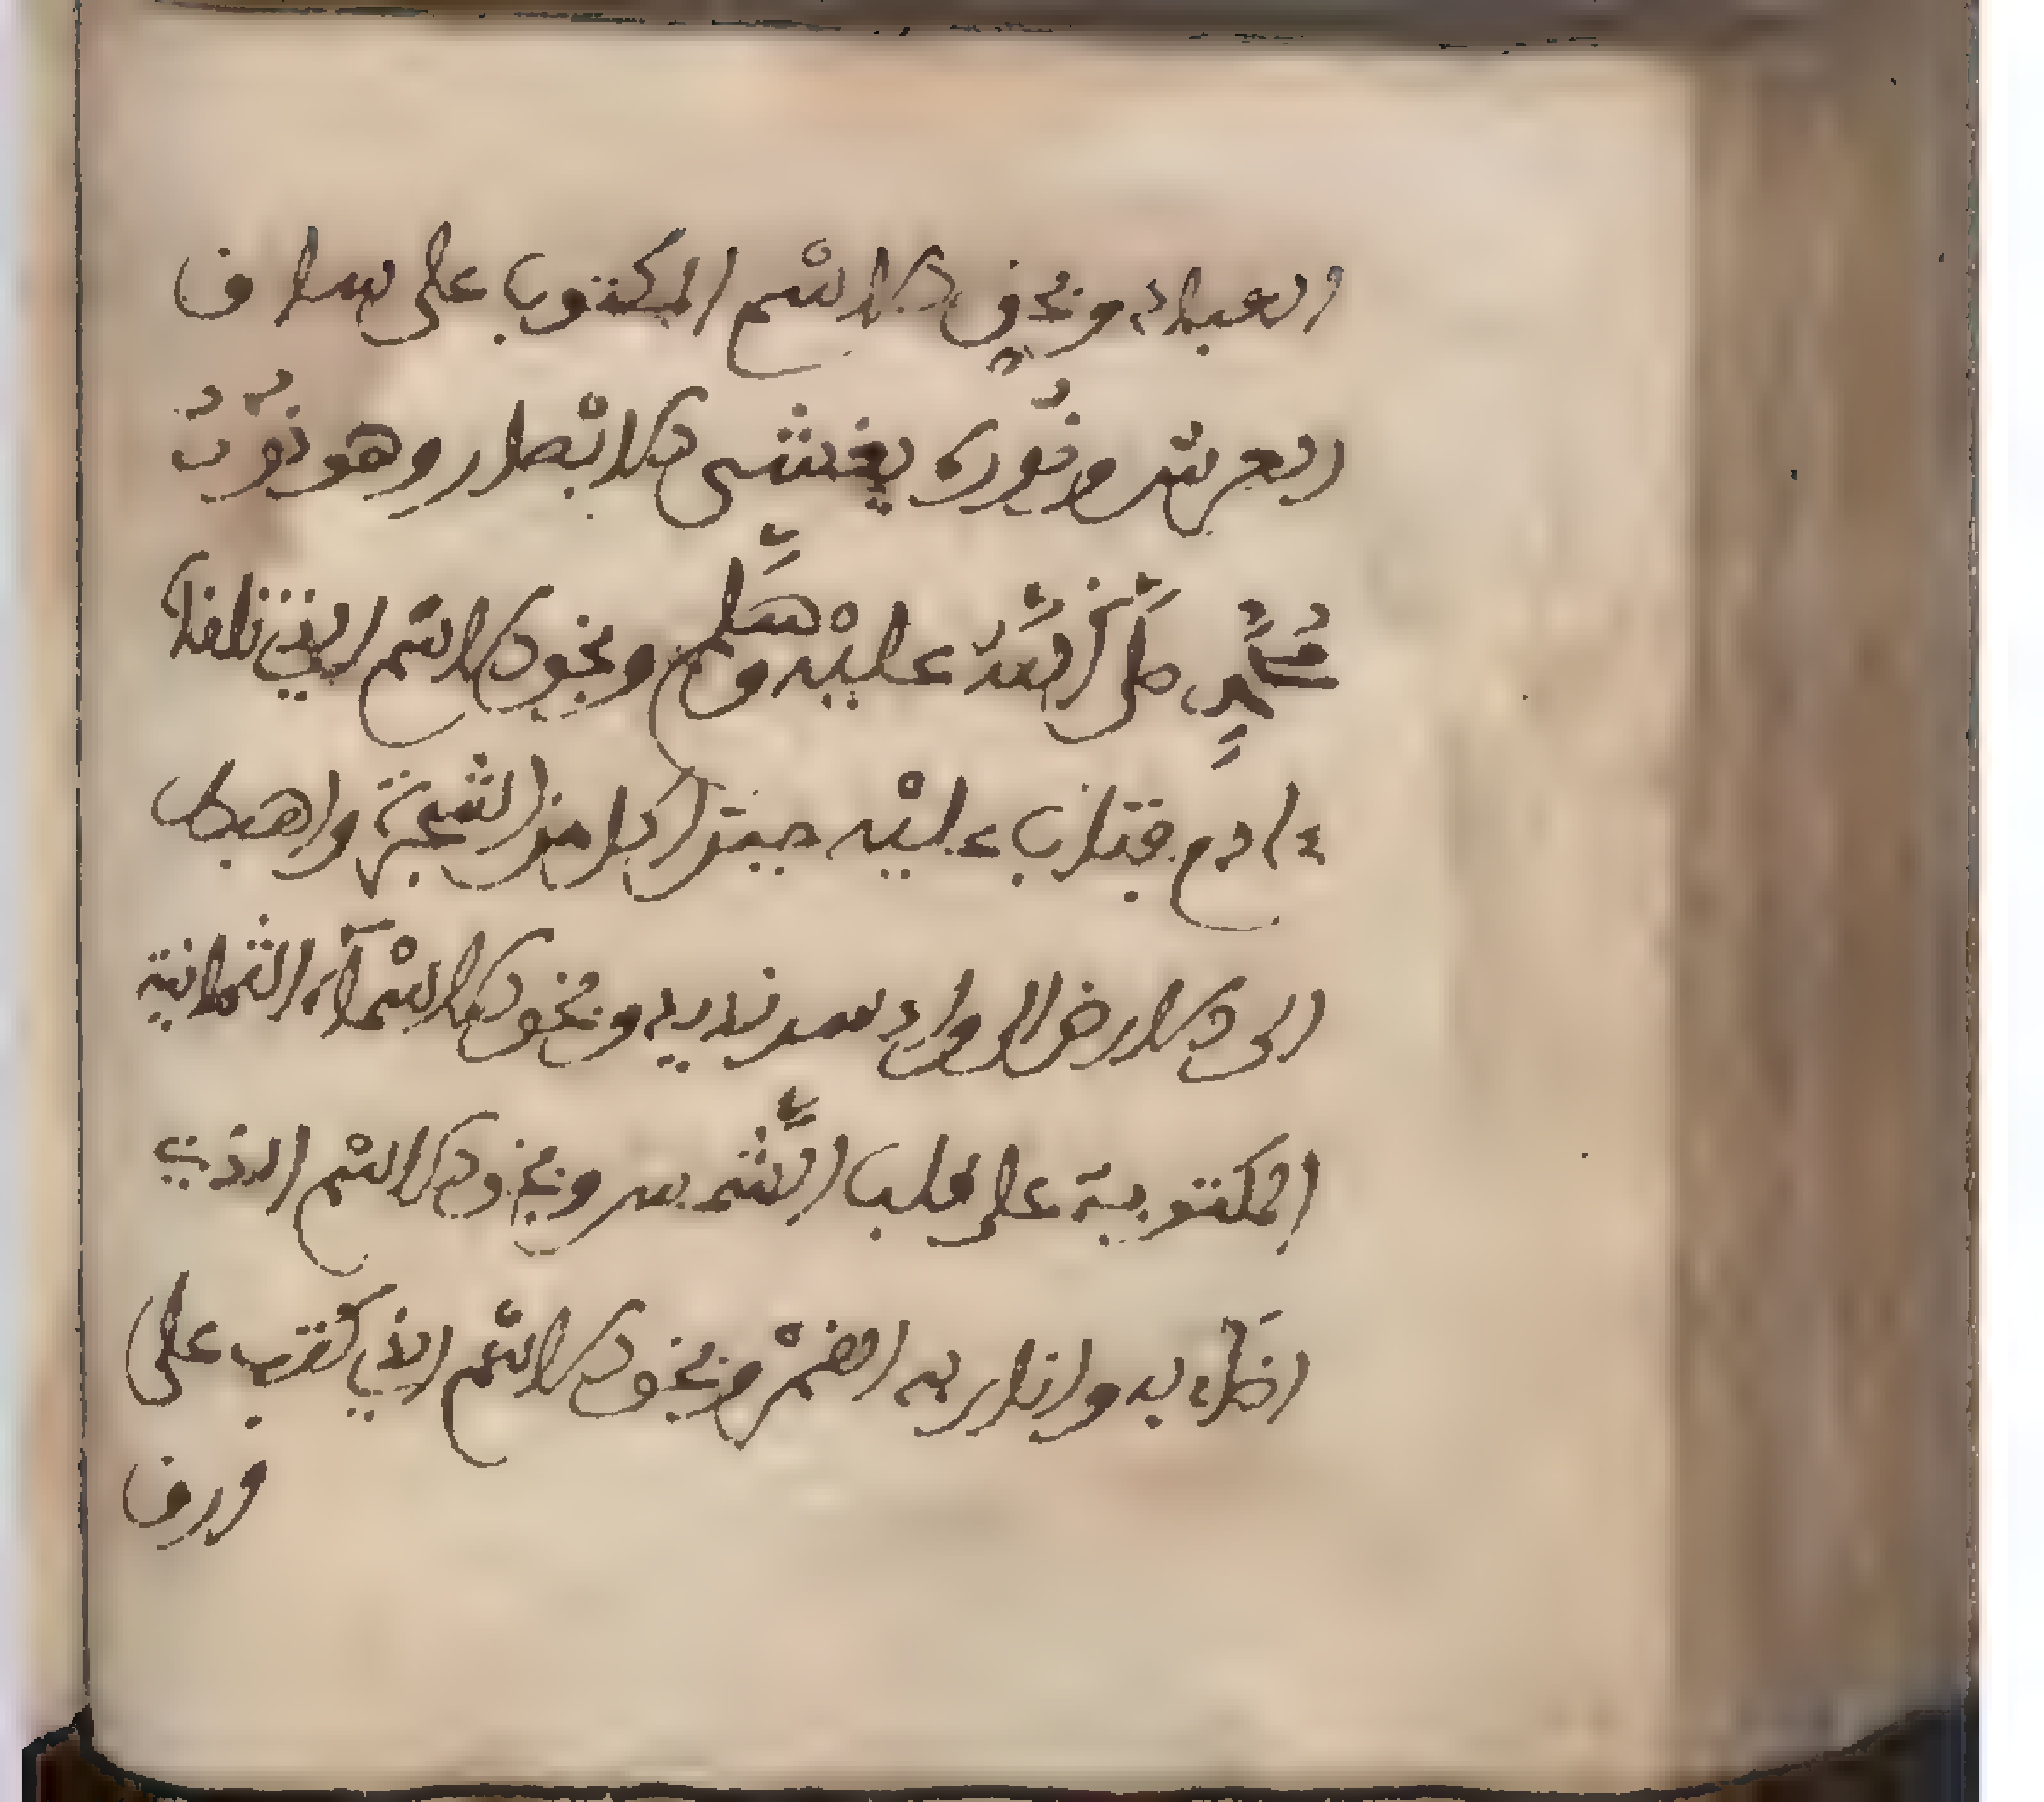 العباد وبحق الاسم المكتوب على ساق
العرش ونوره يغشى الابصار وهو نور
محمد صلى الله عليه وسلم وبحق الاسم الذي تلقا
ءادم فتاب عليه حين اكل من الشجرة واهبط
الى الارض الى واد سرنديه وبحق الاسماء الثمانية
المكتوبة على قلب الشمس وبحق الاسم الذي
اضاء به وانار به القمر وبحق الاسم الذي كتب على
ورق